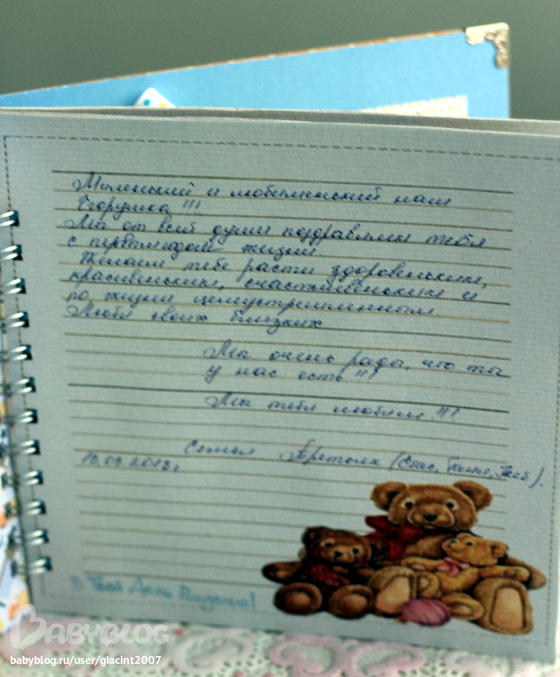 Миленький и любименький наш
Егорушка !!!
Мы от всей души поздравляем тебя
с первым годом жизни.
Желаем тебе расти здоровеньким,
красивеньким, счастливеньким и
по жизни целеустремленным.
Люби своих близких
Мы очень рады, что ты
у нас есть !!!
Мы тебя любим !!!
семья (Стас, Глеб).
16.09.2012г
В Твой День Рождения!
BABYBLOG
babyblog.ru/user/giacint2007